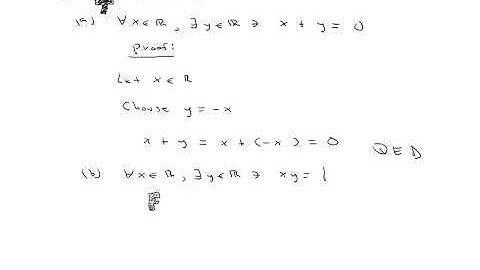 (a) ∀x∈ℝ, ∃y∈ℝ ∋ x + y = 0
Proof:
Let x ∈ ℝ
Choose y = -x
x + y = x + (-x) = 0 QED
(b) ∀x∈ℝ, ∃y∈ℝ ∋ xy = 1
F